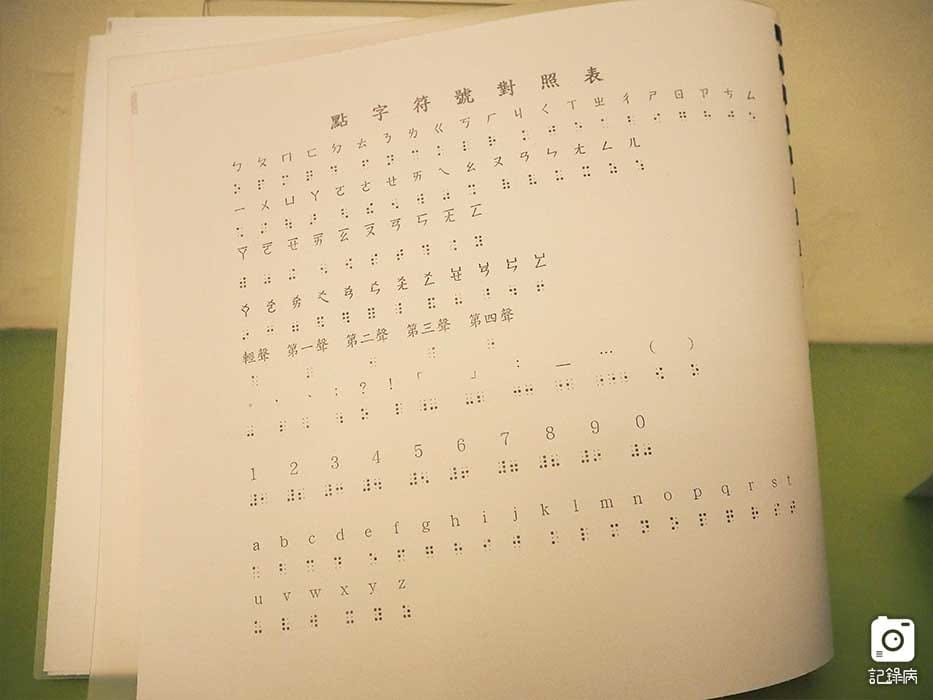 點字符號對照表
ㄅ ㄆ ㄇ ㄈ ㄉ ㄊ ㄋ ㄌ ㄍ ㄎ ㄏ ㄐ ㄑ ㄒ ㄓ ㄔ ㄕ ㄖ ㄗ ㄘ ㄙ
ㄧ ㄨ ㄩ ㄚ ㄛ ㄜ ㄝ ㄞ ㄟ ㄠ ㄡ ㄢ ㄣ ㄤ ㄥ ㄦ
ㄧㄚ ㄧㄛ ㄧㄝ ㄧㄞ ㄧㄠ ㄧㄡ ㄧㄢ ㄧㄣ ㄧㄤ ㄧㄥ
ㄨㄚ ㄨㄛ ㄨㄞ ㄨㄟ ㄨㄢ ㄨㄣ ㄨㄤ ㄨㄥ ㄩㄝ ㄩㄢ ㄩㄣ ㄩㄥ
輕聲 第一聲 第二聲 第三聲 第四聲
。 , 、 ; ? ! 「 」 : — … ( )
1 2 3 4 5 6 7 8 9 0
a b c d e f g h i j k l m n o p q r s t
u v w x y z
記錄病